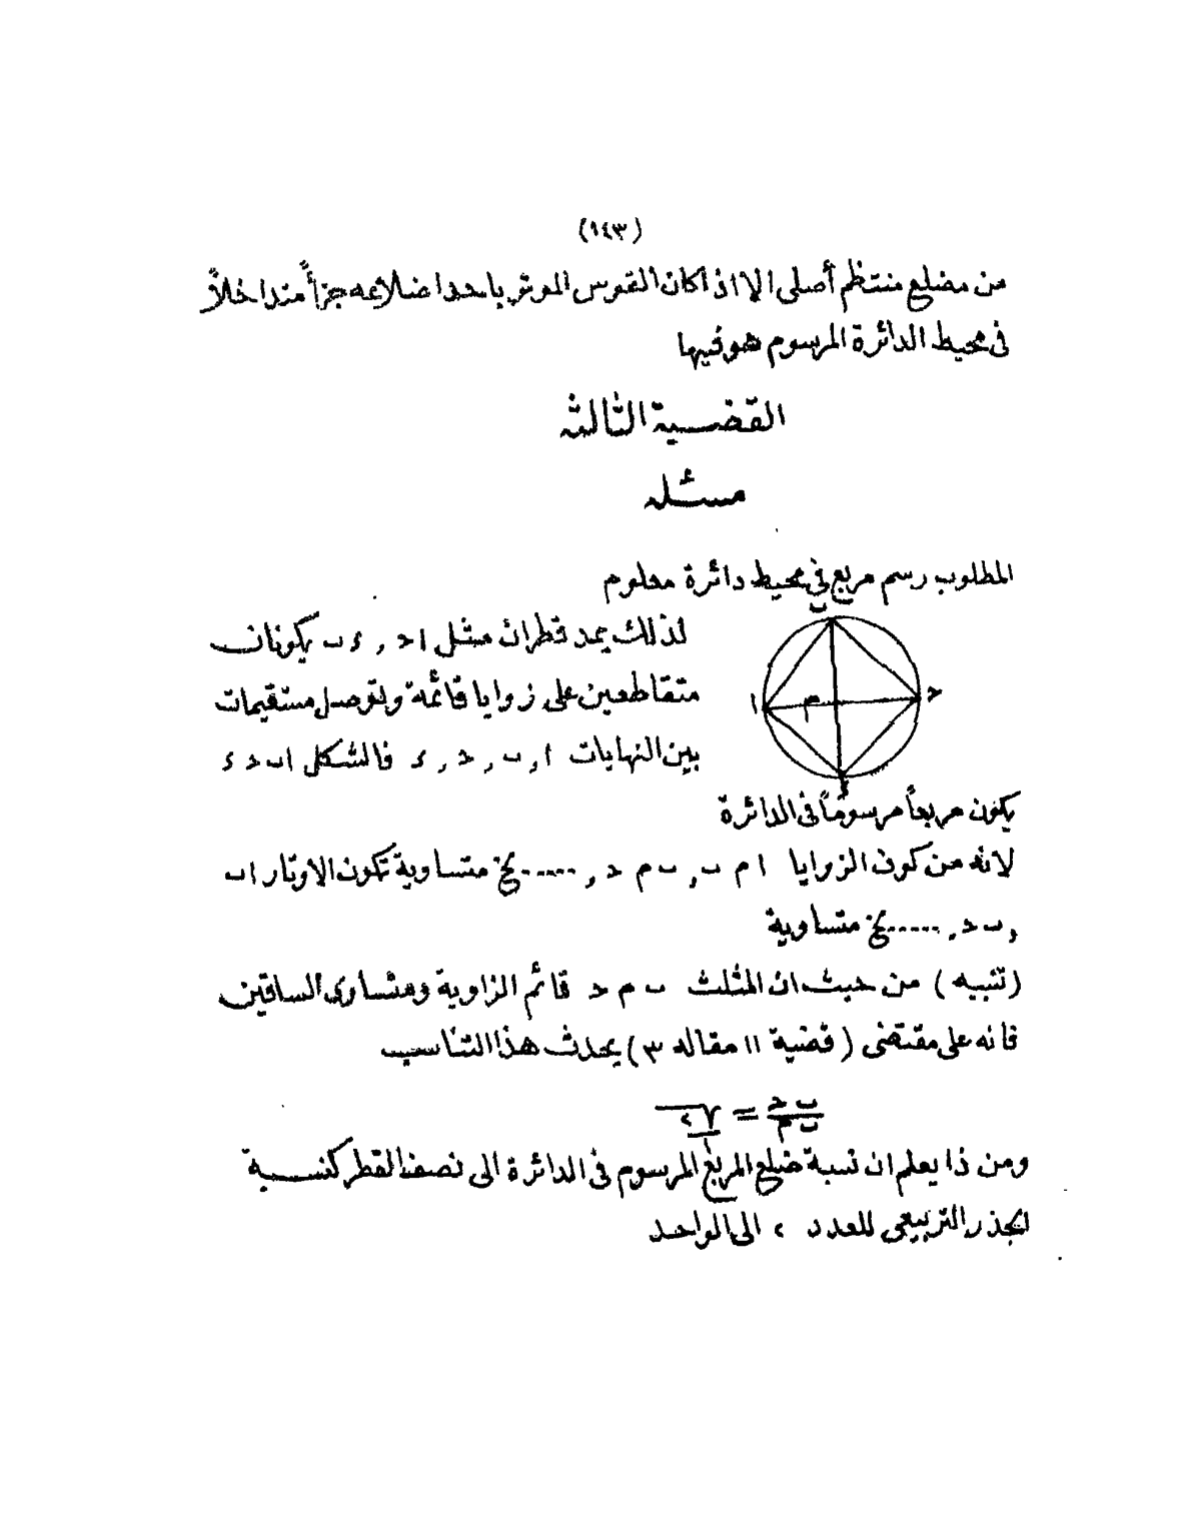 (١٤٣)
من مضلع منتظم أصلى الا اذا كان القوس الموتر باحد اضلاعه جزأً متداخلاً
فى محيط الدائرة المرسوم هو فيها
القضية الثالثه
مسئله
المطلوب رسم مربع فى محيط دائرة معلوم
لذلك يمد قطران مثل اد , ءب يكونان
متقاطعين على زوايا قائمة ولتوصل مستقيمات
بين النهايات ا , ب , د , ء فالشكل اب د ء
ب
ا م د
ء
يكون مربعاً مرسوماً فى الدائرة
لانه من كون الزوايا ا م ب , ب م د , ..... لخ متساوية تكون الاوتار اب
, ب د , ..... لخ متساوية
(تنبيه) من حيث ان المثلث ب م د قائم الزاوية ومتساوى الساقين
فانه على مقتضى (قضية ١١ مقاله ٣) يحدث هذا التناسب
ب د / ب م = √٢
ومن ذا يعلم ان نسبة ضلع المربع المرسوم فى الدائرة الى نصف القطر كنسبة
الجذر التربيعى للعدد ٢ الى الواحد